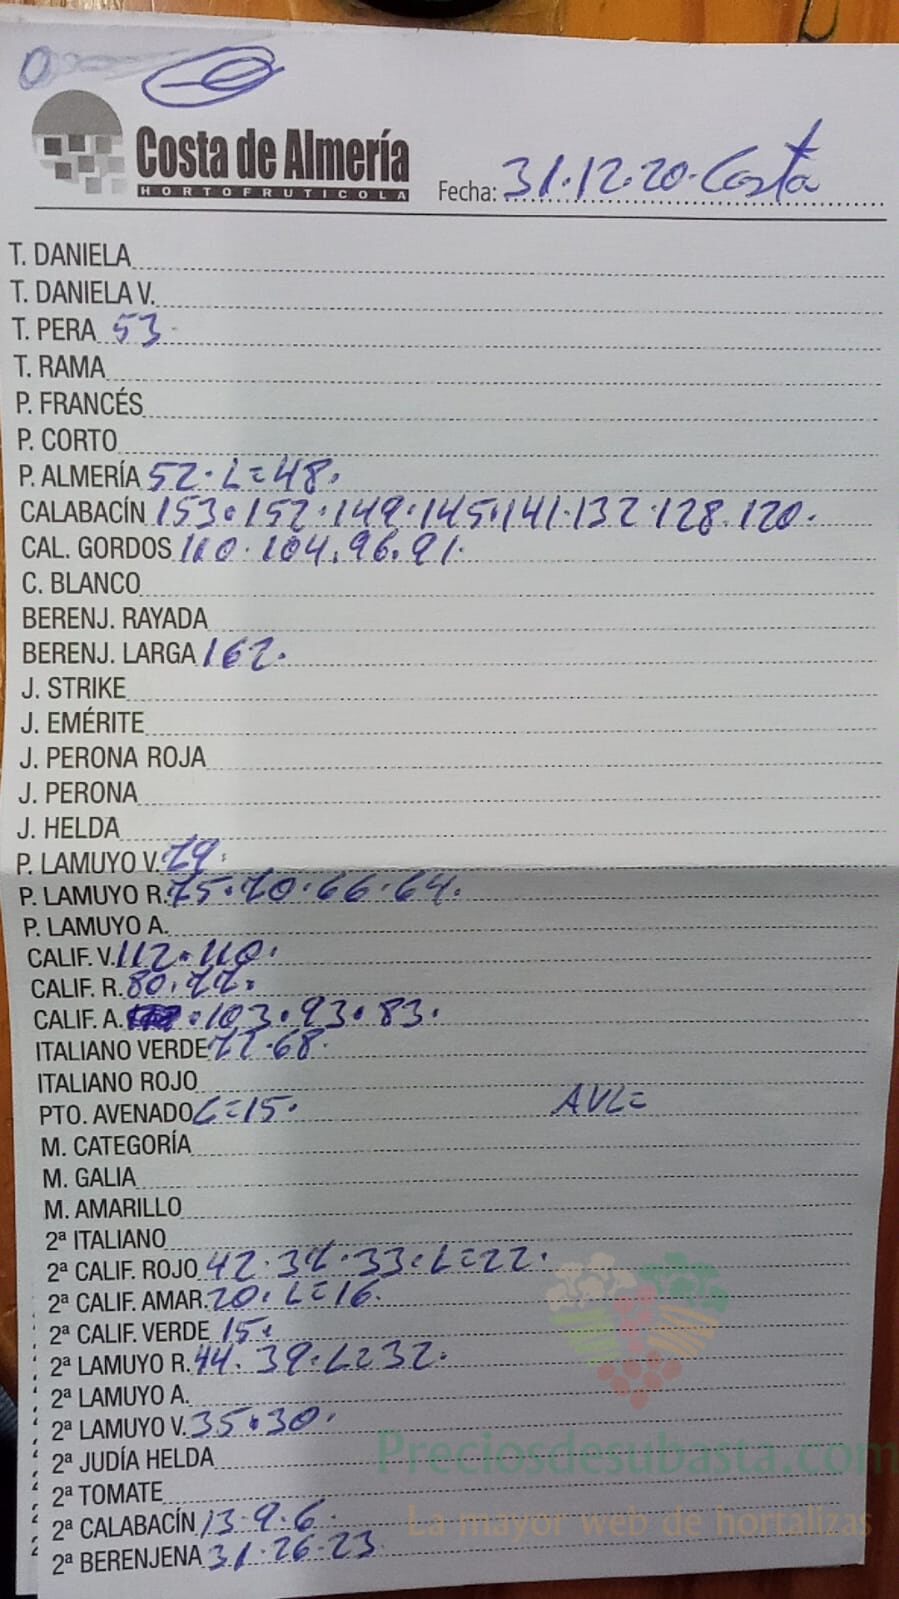 Costa de Almería
HORTOFRUTICOLA
Fecha: 31.12.20. Costa
T. DANIELA
T. DANIELA V.
T. PERA 53.
T. RAMA
P. FRANCÉS
P. CORTO
P. ALMERÍA 52. L=48.
CALABACÍN 153.152.149.145.141.132.128.120.
CAL. GORDOS 110.104.96.91.
C. BLANCO
BERENJ. RAYADA
BERENJ. LARGA 162.
J. STRIKE
J. EMÉRITE
J. PERONA ROJA
J. PERONA
J. HELDA
P. LAMUYO V. 79.
P. LAMUYO R. 75.70.66.64.
P. LAMUYO A.
CALIF. V. 112.110.
CALIF. R. 80.77.
CALIF. A. .103.93.83.
ITALIANO VERDE 77.68.
ITALIANO ROJO
PTO. AVENADO L=15. AVL=
M. CATEGORÍA
M. GALIA
M. AMARILLO
2ª ITALIANO
2ª CALIF. ROJO 42. .33.L=22.
2ª CALIF. AMAR. 20. L=16.
2ª CALIF. VERDE 15.
2ª LAMUYO R. 44.39.L=32.
2ª LAMUYO A.
2ª LAMUYO V. 35.30.
2ª JUDÍA HELDA
2ª TOMATE
2ª CALABACÍN 13.9.6.
2ª BERENJENA 31.26.23
Preciosdesubasta.com
La mayor web de hortalizas